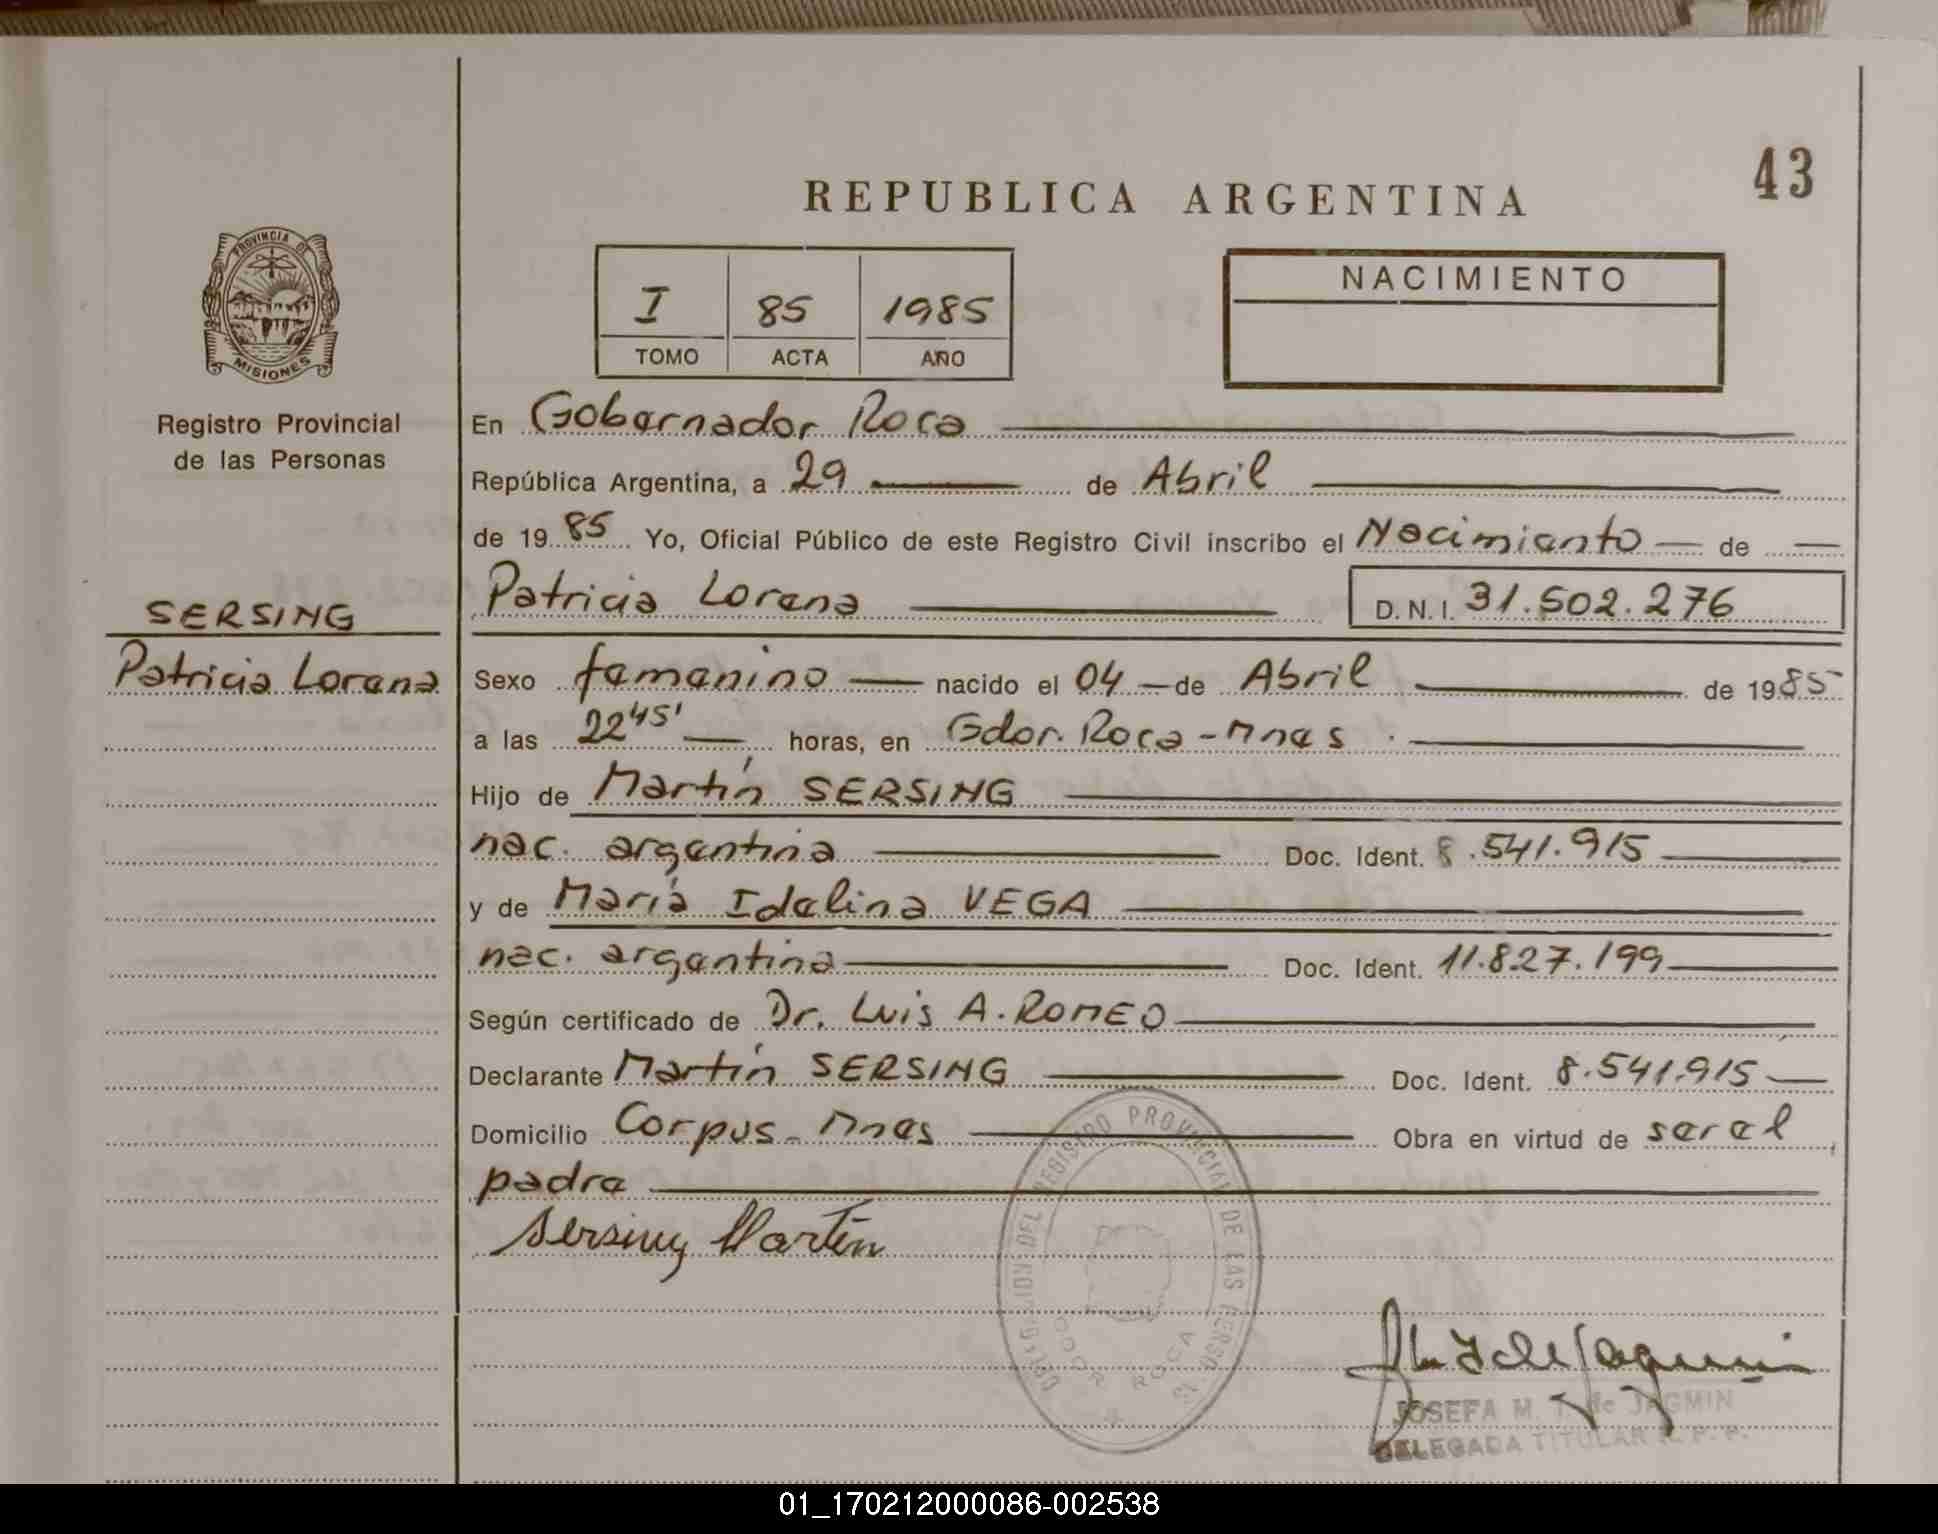 43
REPUBLICA ARGENTINA
PROVINCIA DE
MISIONES
I 85 1985
TOMO ACTA AÑO
NACIMIENTO
Registro Provincial
de las Personas
SERSING
Patricia Lorena
En Gobernador Roca
República Argentina, a 29 de Abril
de 1985 Yo, Oficial Público de este Registro Civil inscribo el Nacimiento de
Patricia Lorena D.N.I. 31.502.276
Sexo femenino nacido el 04 de Abril de 1985
a las 22 45' horas, en Gdor. Roca - Mnes.
Hijo de Martín SERSING
nac. argentina Doc. Ident. 8.541.915
y de María Idelina VEGA
nac. argentina Doc. Ident. 11.827.199
Según certificado de Dr. Luis A. ROMEO
Declarante Martín SERSING Doc. Ident. 8.541.915
Domicilio Corpus - Mnes Obra en virtud de ser el
padre
Sersing Martín
DELEGACION DEL REGISTRO PROVINCIAL DE LAS PERSO
ROCA
JOSEFA M. T. de JAGMIN
DELEGADA TITULAR R. P. P.
01_170212000086-002538